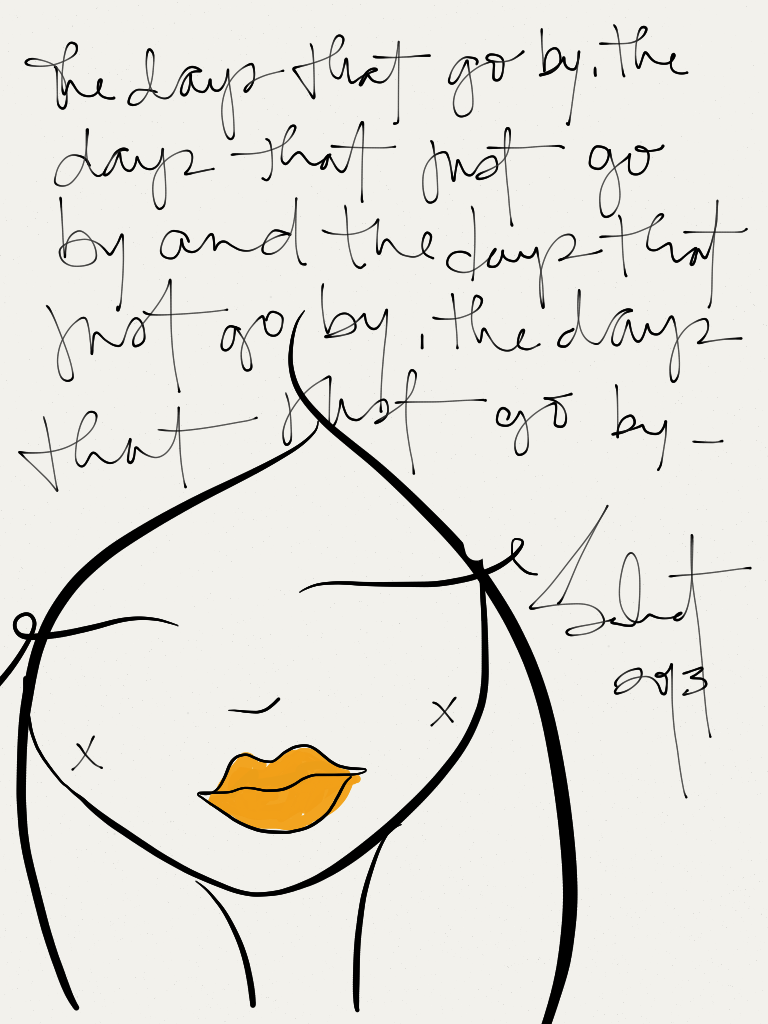 The days that go by, the
days that just go
by and the days that
just go by, the days
that just go by _